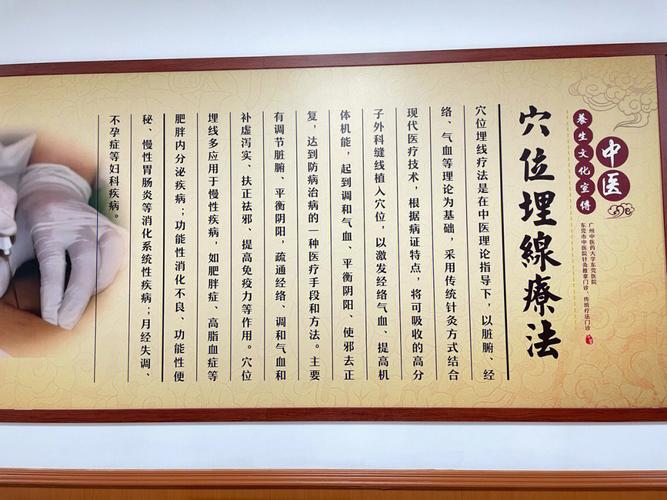 中医
养生文化宣傳
广州中医药大学东莞医院
东莞市中医院针灸推拿门诊、传统疗法门诊
穴位埋線療法
穴位埋线疗法是在中医理论指导下，以脏腑、经
络、气血等理论为基础，采用传统针灸方式结合
现代医疗技术，根据病证特点，将可吸收的高分
子外科缝线植入穴位，以激发经络气血、提高机
体机能，起到调和气血、平衡阴阳、使邪去正
复，达到防病治病的一种医疗手段和方法。主要
有调节脏腑、平衡阴阳，疏通经络、调和气血和
补虚泻实、扶正祛邪、提高免疫力等作用。穴位
埋线多应用于慢性疾病，如肥胖症、高脂血症等
肥胖内分泌疾病；功能性消化不良、功能性便
秘、慢性胃肠炎等消化系统性疾病；月经失调、
不孕症等妇科疾病。